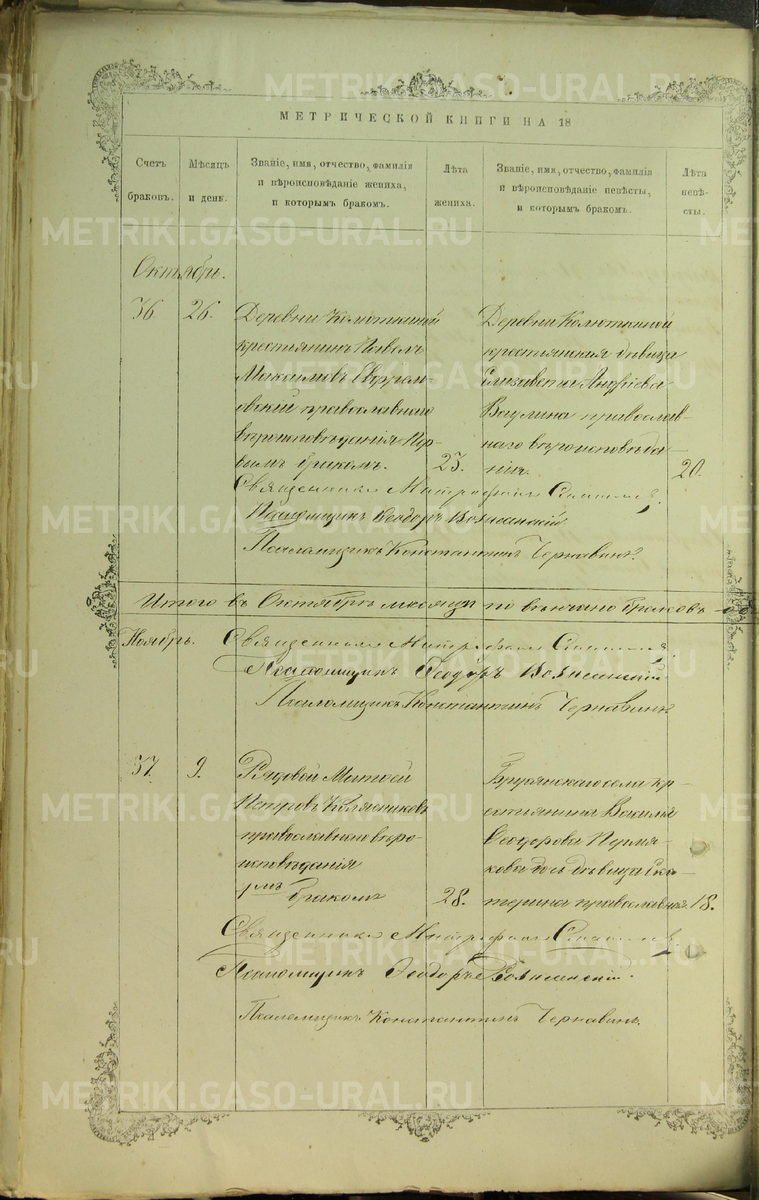 METRIKI.GASO-URAL.RU
МЕТРИЧЕСКОЙ КНИГИ НА 18
Счетъ браковъ.
Мѣсяцъ и день.
Званіе, имя, отчество, фамилія
и вѣроисповѣданіе жениха,
и которымъ бракомъ.
Лѣта
жениха.
Званіе, имя, отчество, фамилія
и вѣроисповѣданіе невѣсты,
и которымъ бракомъ.
Лѣта
невѣ-
сты.
Октябрь.
36
26.
Деревни Колюткиной
крестьянинъ Павелъ
Максимовъ
православнаго
вѣроисповѣданія Пер-
вымъ бракомъ.
23.
Деревни Колюткиной
крестьянская дѣвица
Елизавета Андреева
Ваулина православ-
наго вѣроисповѣда-
нія.
20.
Священникъ Митрофанъ
Псаломщикъ Ѳеодоръ Вознесенскій
Псаломщикъ Константинъ Чернавинъ
Итого въ Октябрѣ мѣсяцѣ повѣнчано браковъ
Ноябрь.
Священникъ Митрофанъ
Псаломщикъ Ѳеодоръ Вознесенскій
Псаломщикъ Константинъ Чернавинъ
37.
9.
Рядовой Матвей
Петровъ Колясниковъ
православнаго вѣро-
исповѣданія
1-мъ бракомъ
28.
Бруянскаго села кр-
естьянина Василія
Ѳеодорова Пермя-
кова дочь дѣвица Ека-
терина православная
18.
Священникъ Митрофанъ
Псаломщикъ Ѳеодоръ Вознесенскій.
Псаломщикъ Константинъ Чернавинъ.